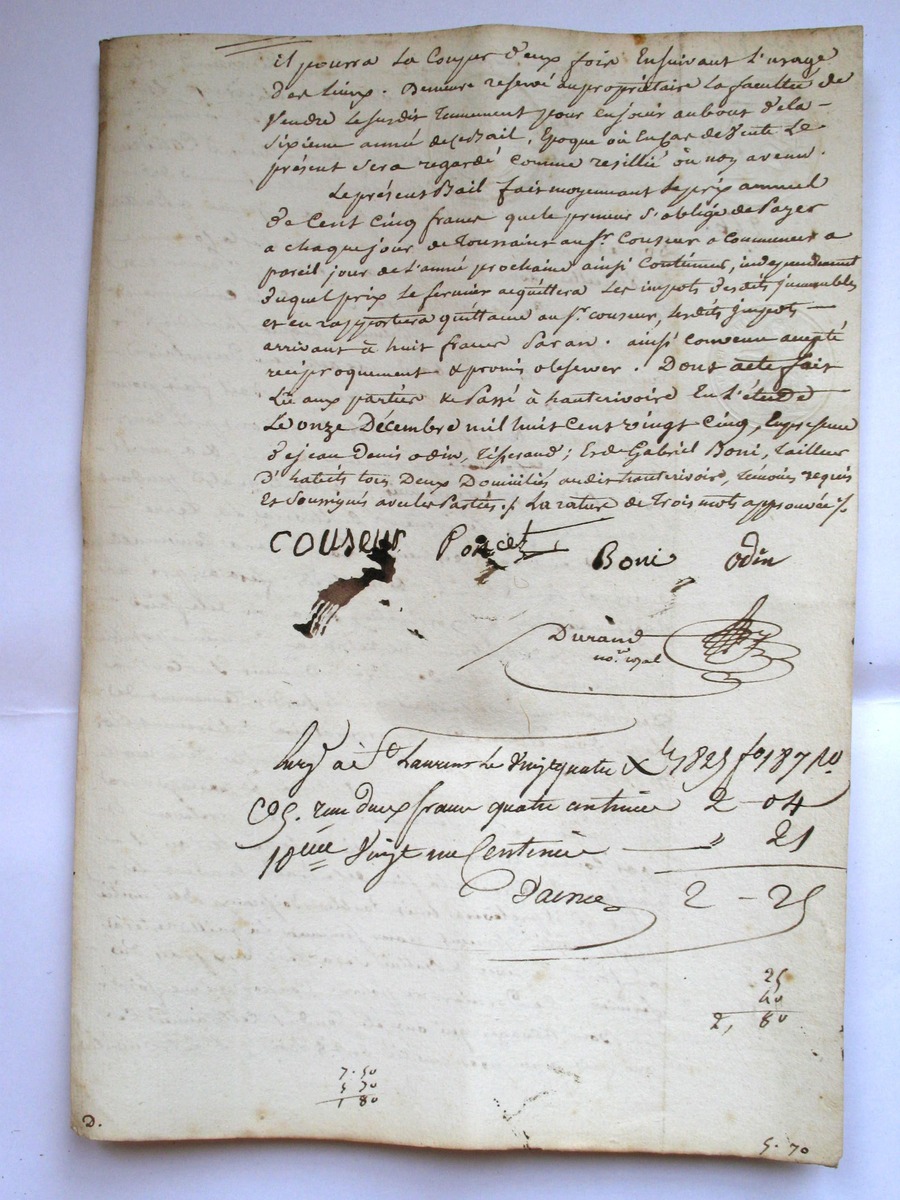 et pourra La Couper deux fois Ensuivant L'usage
Des Lieux. Demeure reservé au propriétaire La faculté de
Vendre Le susdit Tennement pour En jouir au bout de la
Sixieme année de ce Bail, Epoque où En Cas de Vente Le
présent Sera regardé Comme resillié où non avenu.
Le présent Bail fait moyennant Le prix annuel
De Cent Cinq francs que le preneur s'oblige de Payer
a chaque jour de Toussaint au Sr. Couseur a Commencer a
pareil jour de L'année prochaine ainsi Continuer, independament
Duquel prix Le fermier acquittera Les impots Desdits jmmeubles
et en rapportera quittance au Sr. couseur, Lesdits jmpots
arrivant à huit francs Par an. ainsi Convenu accepté
réciproquement & promis observer. Dont acte fait
Lû aux parties & Passé à hauterivoire En L'étude
Le onze Décembre mil huit Cent vingt Cinq, En présence
De jean Denis odin, Tisserand; Et de Gabriel Boni, Tailleur
D'habits tous Deux Domiciliés audit hauterivoire, Témoins requis
Et Soussignés avec Les Parties ./. La rature de Trois mots approuvée ./.
COUSEUR Poncet Boni Odin
Durand
no.re royal
à St Laurent Le Vingt quatre Xbre 1825 fo 187 Ro
Cos. reçu deux francs quatre centimes 2 - 04
10ème Vingt un Centimes — " 21
2 - 25
25
40
2, 80
7.50
5 70
1 80
D.
5.70